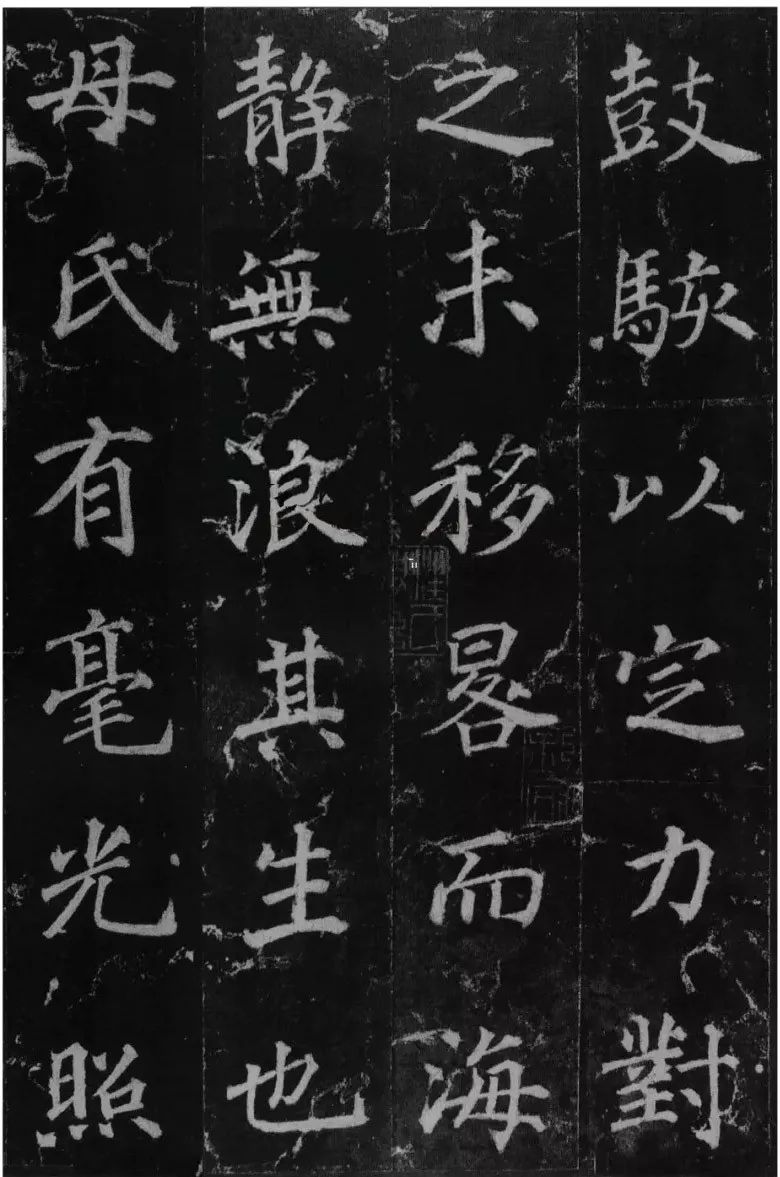 鼓駭以定力對
之未移晷而海
靜無浪其生也
母氏有毫光照